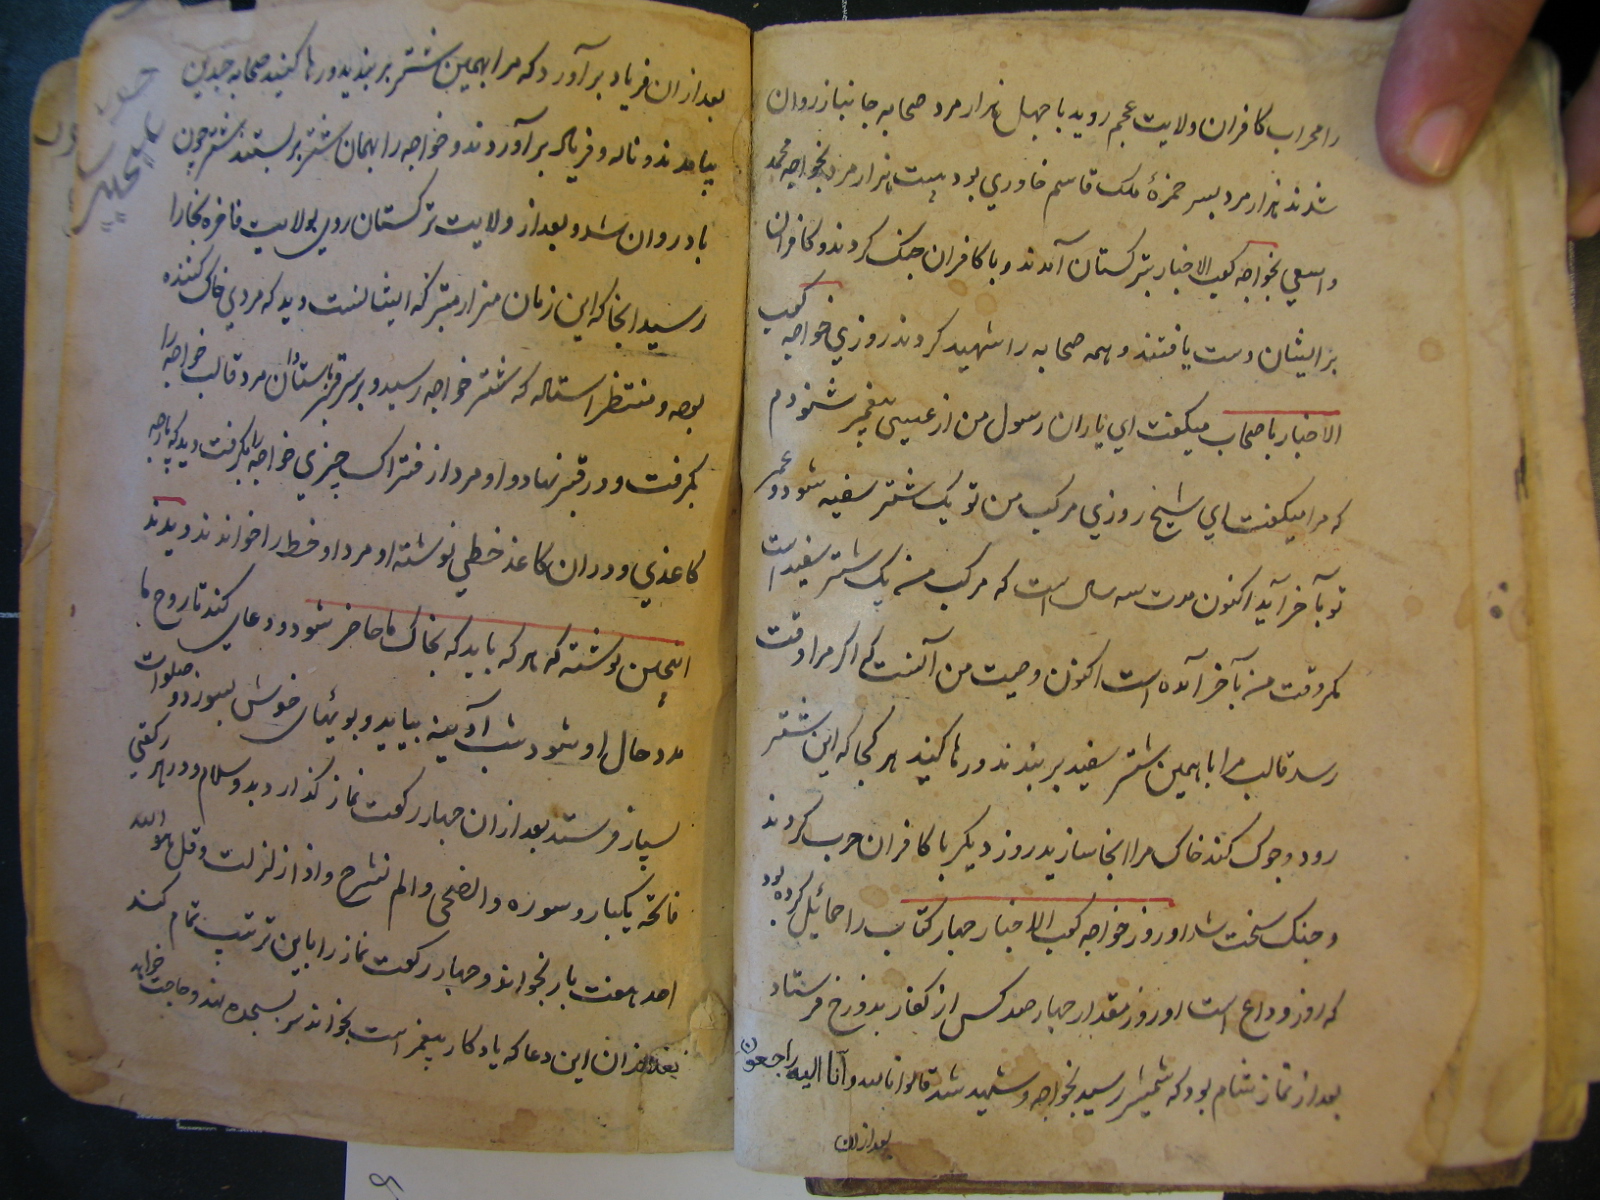 را محراب کافران ولایت عجم روید با چهل هزار مرد صحابه جانباز روان
شدند هزار مرد بسر حمزهٔ ملک قاسم خاوری بود بیست هزار مرد بخواجه محمد
واسعی بخواجه کعب الاخبار بترکستان آمدند و با کافران جنک کردند و کافران
بر ایشان دست یافتند و همه صحابه را شهید کردند روزی خواجه کعب
الاخبار با صحاب میکفت ای یاران رسول من از عیسی پیغمبر شنودم
که مرا میکفت ای شیخ روزی مرکب من تو یک شتر سفید شود و عمر
تو بآخر آید اکنون مدت سه سال است که مرکب من یک شتر سفید است
مکر وقت من بآخر آمده است اکنون وصیت من آنست که اکر مرا وقت
رسد قالب مرا با همین شتر سفید بر بندند و رها کنید هر کجا که این شتر
رود و جوک کند خاک مرا آنجا سازید روز دیکر با کافران حرب کردند
و جنک سخت شد او روز خواجه کعب الاخبار چهار کتاب را حمائل کرده بود
که اروز وداع است اوروز مقدار چهار صد کس از کفار بدوزخ فرستاد
بعد از نماز شام بود که شمشیر رسید بخواجه و شهید شد قالوا انا لله و آنا الیه راجعون
بعد ازان
بعد ازان فریاد بر آورد که مرا بهمین شتر بر بندید و رها کنید صحابه چندین
بیامدند و ناله و فریاد بر آوردند و خواجه را بهمان شتر بر بستند شتر چون
باد روان شد و بعد از ولایت ترکستان روی بولایت فاخره بخارا
رسید آنجا که این زمان مزار متبرکه ایشانست دید که مردی خاک کننده
بوده و منتظر استاده که شتر خواجه رسید و بر سر قبر باستاد آن مرد قالب خواجه را
بکرفت و در قبر نهاد و او مرد از فتراک چیزی خواجه را بکرفت دید که پارچه
کاغذی و در ان کاغذ خطی نوشته او مرد او خط را خواندند و دیدند
اینچنین نوشته که هر که باید که بخاک ما حاضر شود و دعای کند تا روح ما
مدد حال او شود شب آدینه بیاید و بویهای خوش بسوزد و صلوات
بسیار فرستد بعد ازان چهار رکعت نماز کذارد بدو سلام و در هر رکعتی
فاتحه یکبار و سوره والضحی و الم نشرح و اذا زلزلت و قل هو الله
احد هفت بار بخواند و چهار رکعت نماز را باین ترتیب تمام کند
بعد ازان این دعا که یادکار پیغمبر است بخواند سر بسجده نهد و حاجت خواهد